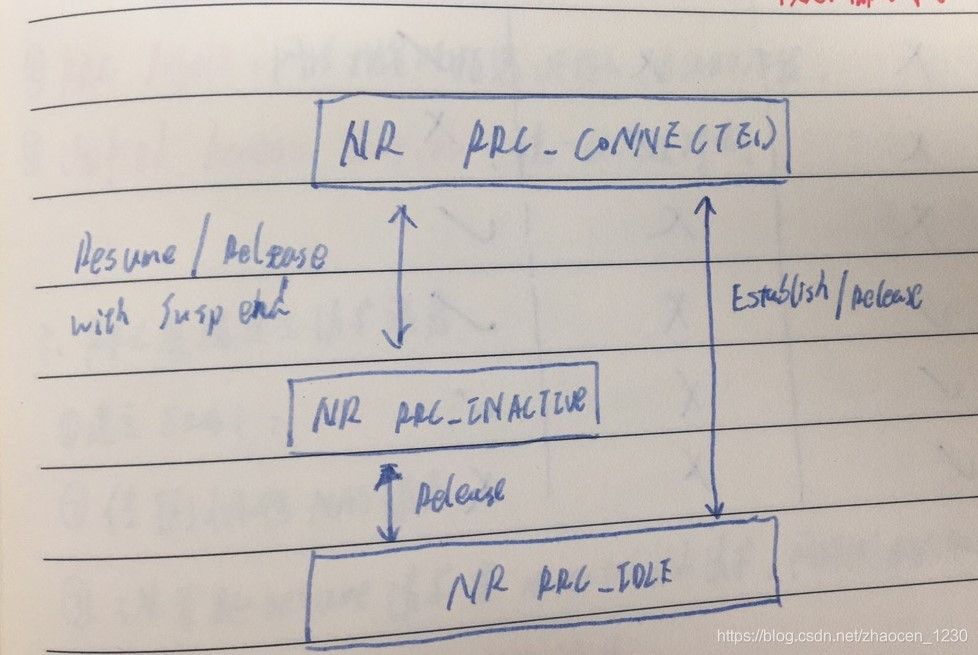 NR RRC_CONNECTED
Resume / Release
with Suspend
Establish/Release
NR RRC_INACTIVE
Release
NR RRC_IDLE
https://blog.csdn.net/zhaocen_1230